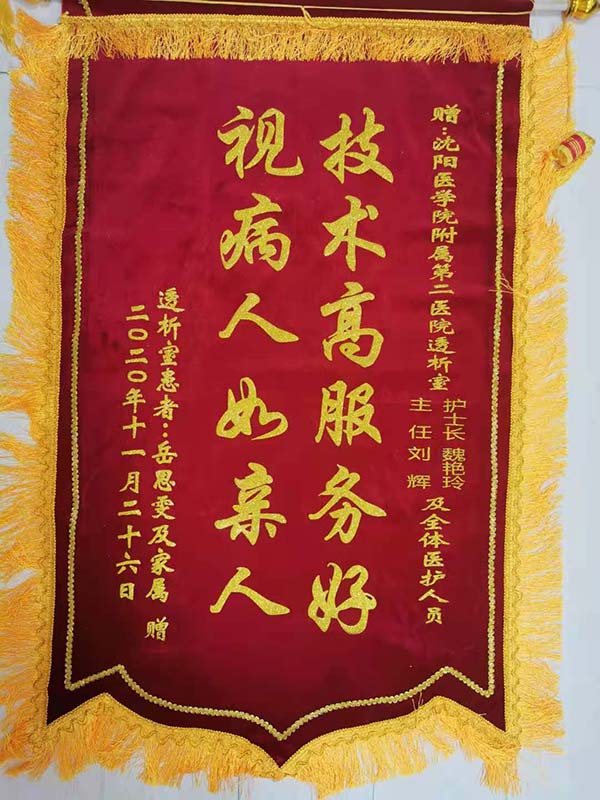 赠:沈阳医学院附属第二医院透析室
护士长 魏艳玲
主任刘辉
及全体医护人员
技术高服务好
视病人如亲人
透析室患者:岳恩雯及家属 赠
二〇二〇年十一月二十六日